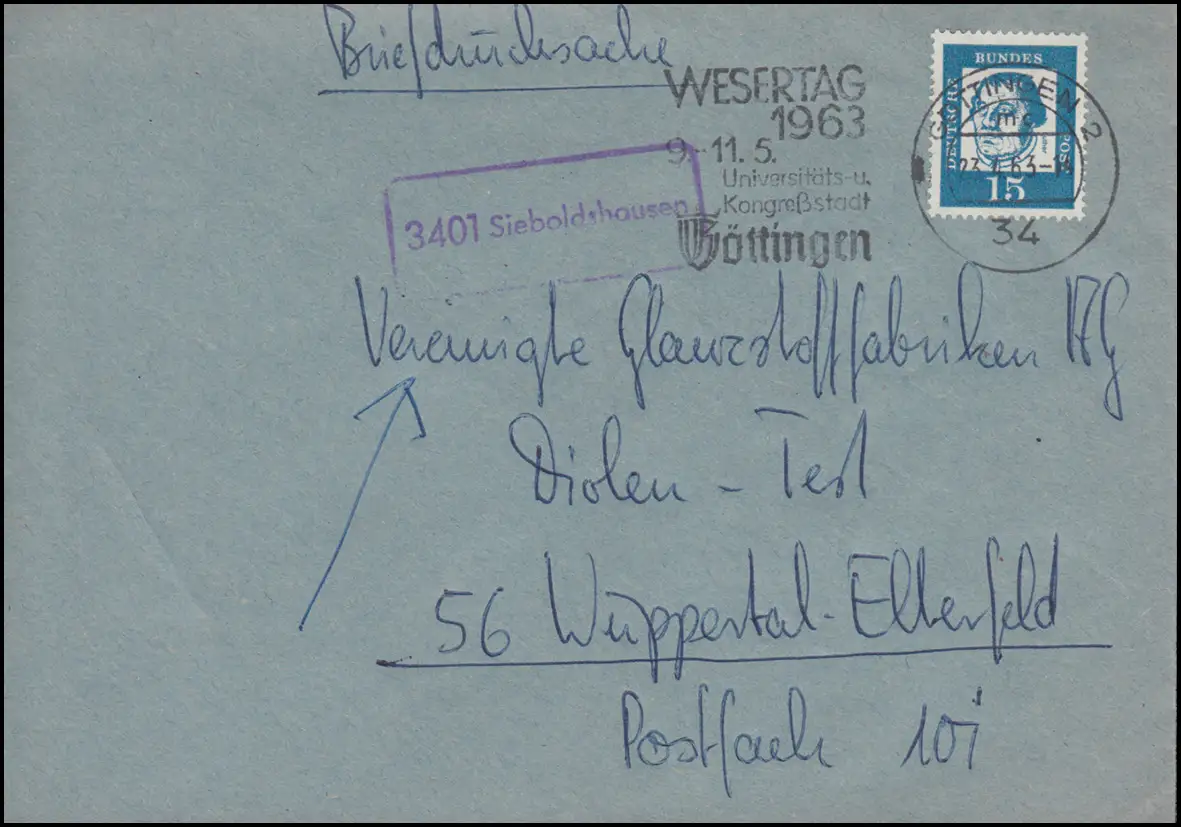 Briefdrucksache
WESERTAG
1963
9.-11. 5.
Universitäts-u.
Kongreßstadt
Göttingen
DEUTSCHE
BUNDES
POST
15
GÖTTINGEN 2
mc
34
3401 Sieboldshausen
Vereinigte Glanzstofffabriken AG
Diolen - Test
56 Wuppertal-Elberfeld
Postfach